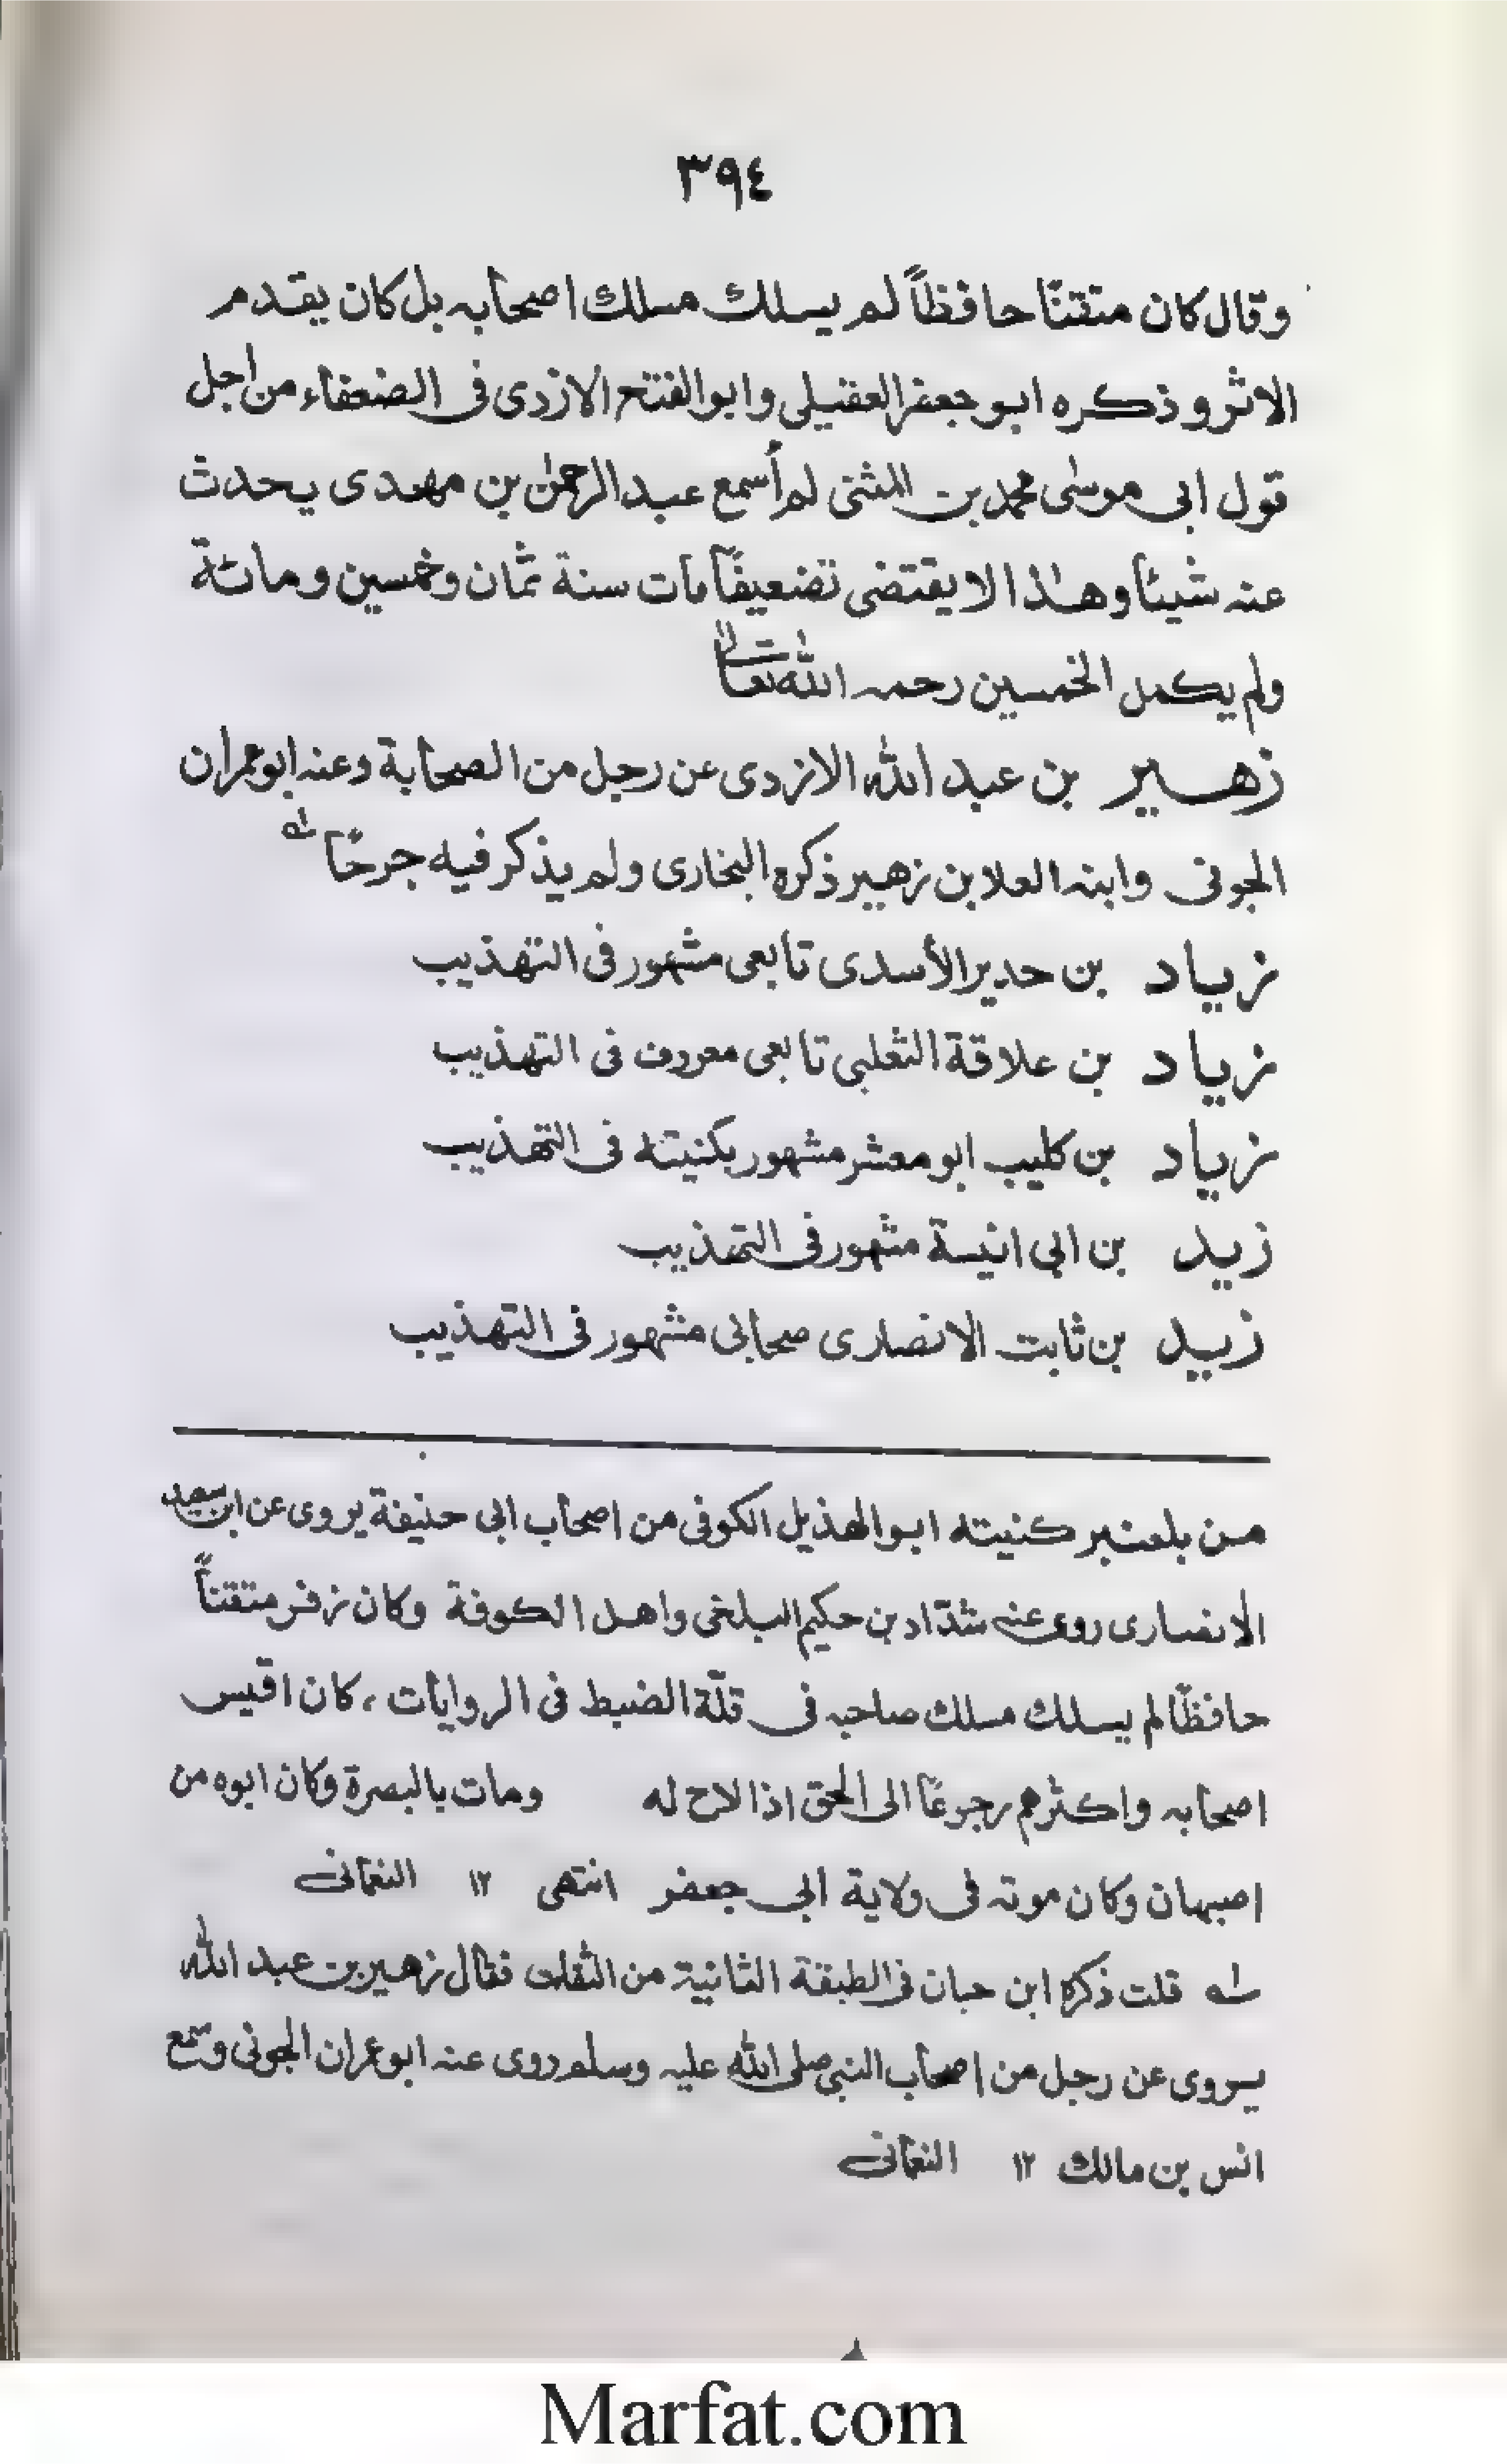 ٣٩٤
وقال كان متقنًا حافظاً لم يسلك مسلك اصحابه بل كان يقدم
الاثر وذكره ابو جعفر العقيلى وابو الفتح الازدى فى الضعفاء من اجل
قول ابى موسٰى محمد بن المثنى لم أسمع عبد الرحمٰن بن مهدى يحدث
عنه شيئاً وهٰذا الا يقتضى تضعيفاً مات سنة ثمان وخمسين ومائة
ولم يكمل الخمسين رحمه الله تعالٰى
زهير بن عبد الله الازدى عن رجل من الصحابة وعنه ابو عمران
الجونى وابنه العلا بن زهير ذكره البخارى ولم يذكر فيه جرحًا له
زياد بن حدير الأسدى تابعى مشهور فى التهذيب
زياد بن علاقة الثعلبى تابعى معروف فى التهذيب
زياد بن كليب ابو معشر مشهور بكنيته فى التهذيب
زيد بن ابى انيسة مشهور فى التهذيب
زيد بن ثابت الانصارى صحابى مشهور فى التهذيب
من بلعنبر كنيته ابو الهذيل الكوفى من اصحاب ابى حنيفة يروى عن ابن سعيد
الانصارى روى عنه شدّاد بن حكيم البلخى واهل الكوفة وكان زفر متقناً
حافظًا لم يسلك مسلك صاحبه فى قلّة الضبط فى الروايات ، كان اقيس
اصحابه واكثرهم رجوعًا الى الحق اذا لاح له ومات بالبصرة وكان ابوه من
اصبهان وكان موته فى ولاية ابى جعفر انتهى ١٢ النعمانى
له قلت ذكره ابن حبان فى الطبقة الثانية من الثقات فقال زهير بن عبد الله
يروى عن رجل من اصحاب النبى صلى الله عليه وسلم روى عنه ابو عمران الجونى وسمع
انس بن مالك ١٢ النعمانى
Marfat.com